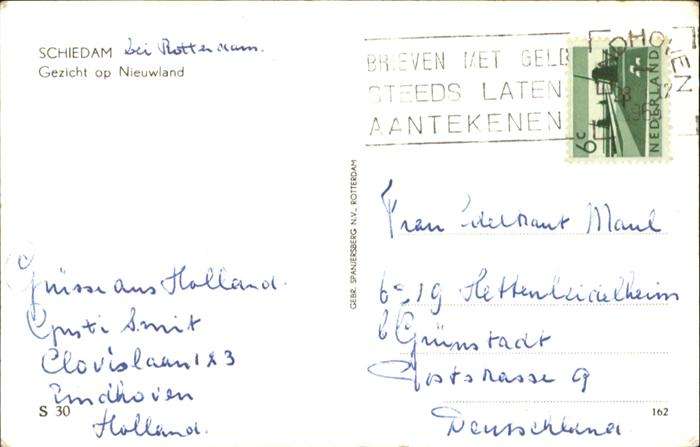 SCHIEDAM bei Rotterdam.
Gezicht op Nieuwland
BRIEVEN MET GELD
STEEDS LATEN
AANTEKENEN
EINDHOVEN
6c
NEDERLAND
GEBR. SPANJERSBERG N.V., ROTTERDAM
Frau Edeltraut Maul
6719 Hettenleidelheim
b Grünstadt
Poststrasse 9
Deutschland.
Grüsse aus Holland.
Gusti Smit
Clovislaan 123
Eindhoven
Holland.
S 30
162